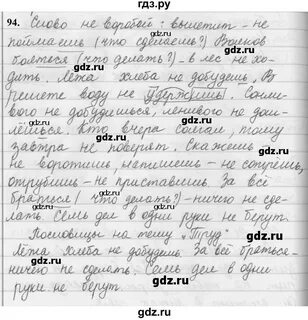 гдз.ру
94. Слово не воробей: вылетит - не
поймаешь (что сделаешь?) Волков
бояться (что делать?) - в лес не хо-
дить. Лёжа хлеба не добудешь. В
решете воду не удержишь. Сонли-
вого не добудишься, ленивого не дош-
лёшься. Кто вчера солгал, тому
завтра не поверят. Скажешь -
не воротишь, напишешь - не сотрёшь,
отрубишь - не приставишь. За всё
браться (что делать?) - ничего не сде-
лать. Семь дел в одни руки не берут.
Пословицы на тему "Труд"
Лёжа хлеба не добудешь. За всё браться -
ничего не сделать. Семь дел в одни
руки не берут.
gdz.ru